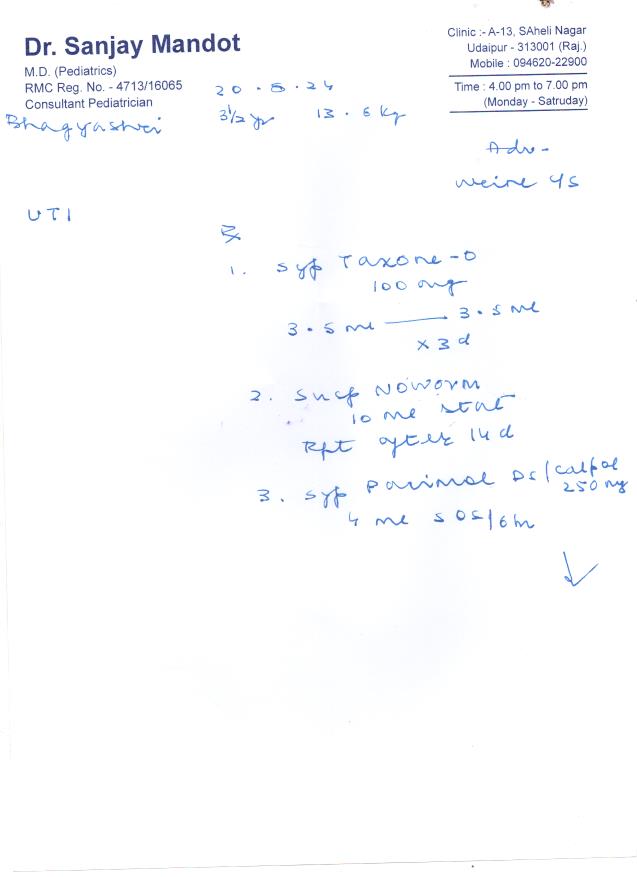 Dr. Sanjay Mandot
M.D. (Pediatrics)
RMC Reg. No. - 4713/16065
Consultant Pediatrician
Clinic :- A-13, SAheli Nagar
Udaipur - 313001 (Raj.)
Mobile : 094620-22900
Time : 4.00 pm to 7.00 pm
(Monday - Satruday)
20.5.24
Bhagyashri 3½ yr 13.6 kg
Adv -
Urine
UTI
Rx
1. Syp Taxone-O
100 mg
3.5 ml — 3.5 ml
x 3d
2. Susp Noworm
10 ml stat
Rpt after 14 d
3. Syp DS/Calpol
250 mg
4 ml SOS/6h